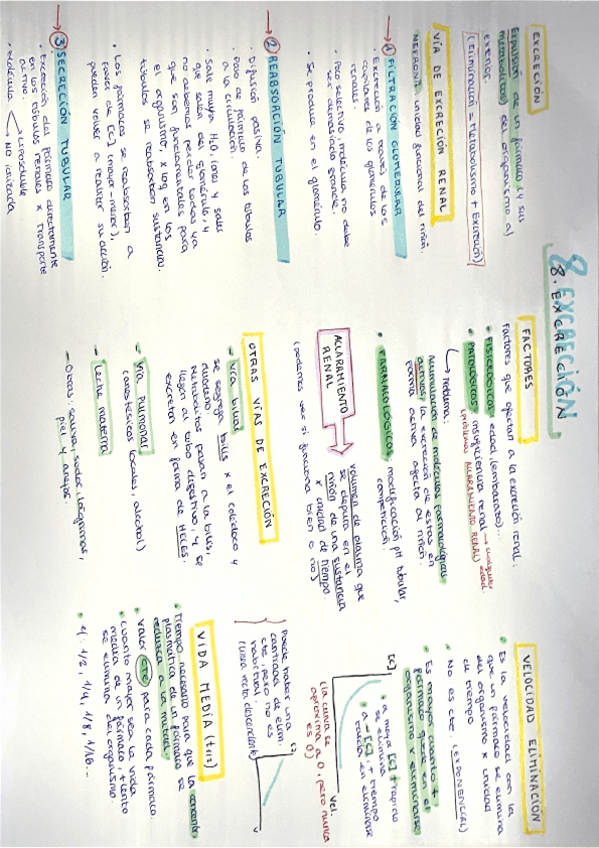 8. EXCRECIÓN
8. EXCRECIÓN
EXCRECIÓN
Expulsión de un fármaco (y sus
metabolitos) del organismo al
exterior.
(Eliminación = Metabolismo + Excreción)
VÍA DE EXCRECIÓN RENAL
NEFRONA: unidad funcional del riñón.
① FILTRACIÓN GLOMERULAR
• Excreción a través de los
capilares de los glomérulos
renales.
• Poco selectivo, molécula no debe
ser demasiado grande.
• Se produce en el glomérulo.
② REABSORCIÓN TUBULAR
• Difusión pasiva.
• Paso de fármaco de los túbulos
a la circulación.
• Sale mucha H₂O, iones y sales
que salen del glomérulo, y
no debemos perder todos ya
que son fundamentales para
el organismo, x lo q en los
túbulos se reabsorben sustancias.
• Los fármacos se reabsorben a
favor de [c] (mayor-menor),
pueden volver a realizar su acción.
③ SECRECIÓN TUBULAR
• Excreción del fármaco directamente
en los túbulos renales x transporte
activo.
• Molécula
Liposoluble
No ionizada
FACTORES
Factores que afectan a la excreción renal:
• FISIOLÓGICOS: edad, (embarazo)...
• PATOLÓGICOS: insuficiencia renal → cualquier edad.
(problemas ACLARAMIENTO RENAL)
Problema:
acumulación de moléculas farmacológicas
activas, la excreción de estas en
forma activa afecta al riñón.
• FARMACOLÓGICOS: modificación pH tubular,
competición.
ACLARAMIENTO
RENAL
volumen de plasma que
se depura en el
riñón de una sustancia
x unidad de tiempo.
(podemos ver si funciona bien o no)
OTRAS VÍAS DE EXCRECIÓN
- Vía biliar
se segrega bilis x el colédoco y
duodeno.
Metabolitos pasan a la bilis,
llegan al tubo digestivo, y se
excretan en forma de HECES.
- Vía pulmonar
(anestésicos locales, alcohol)
- Leche materna
- Otras: saliva, sudor, lágrimas,
piel y anejos.
VELOCIDAD ELIMINACIÓN
• Es la velocidad con la
que un fármaco se elimina
del organismo x unidad
de tiempo
• No es cte. (EXPONENCIAL)
• Es mayor cuanto +
fármaco quede en el
organismo x eliminarse
[c]
vel.
• a mayor [c] + rápido
se elimina
• a - [c], + tiempo
tarda en eliminarse
(la curva se
aproxima a 0, pero nunca
es 0)
Puede haber una
cantidad de elim.
cte, pero no es
habitual.
(línea recta descendente)
VIDA MEDIA (t1/2)
• Tiempo necesario para que la concentr.
plasmática de un fármaco se
reduzca a la mitad.
• Valor cte para cada fármaco.
• Cuanto mayor sea la vida
media de un fármaco, + lento
se elimina del organismo
• ej: 1/2, 1/4, 1/8, 1/16...